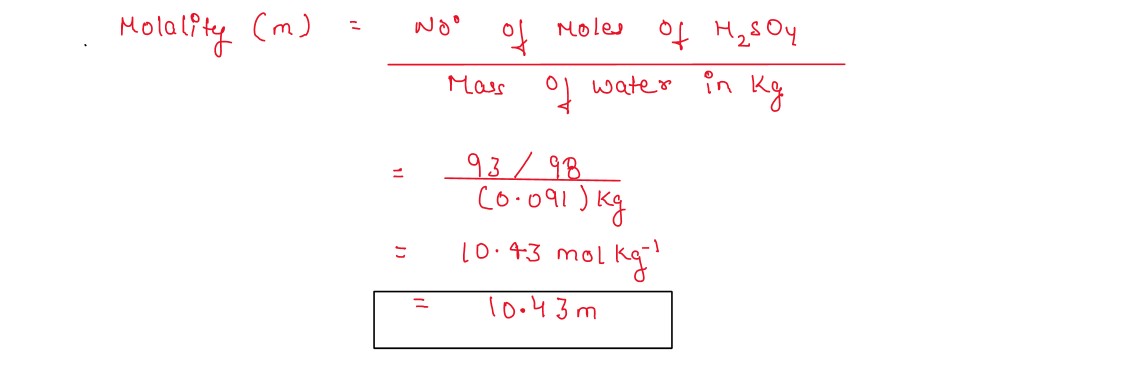 Molality (m) = No° of Moles of H₂SO₄
Mass of water in Kg
= 93 / 98
(0.091) Kg
= 10.43 mol Kg⁻¹
= 10.43 m